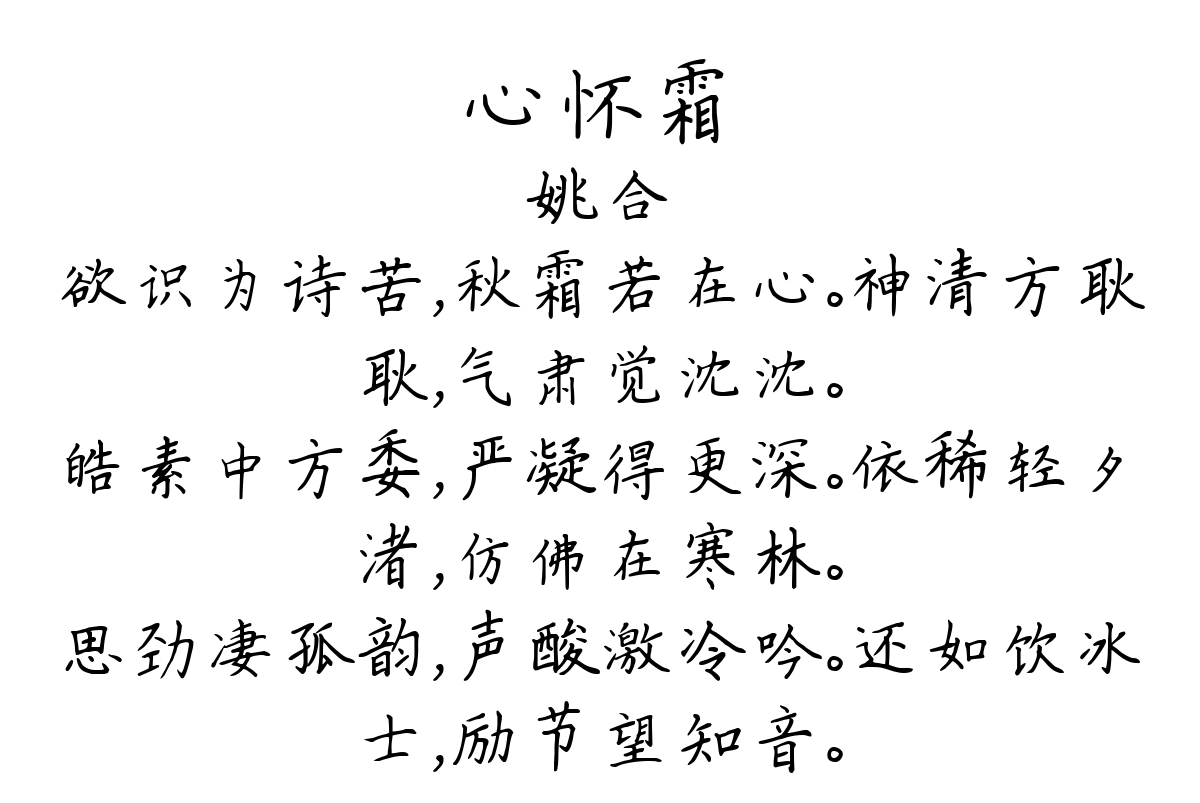 心怀霜
姚合
欲识为诗苦,秋霜若在心。神清方耿
耿,气肃觉沈沈。
皓素中方委,严凝得更深。依稀轻夕
渚,仿佛在寒林。
思劲凄孤韵,声酸激冷吟。还如饮冰
士,励节望知音。